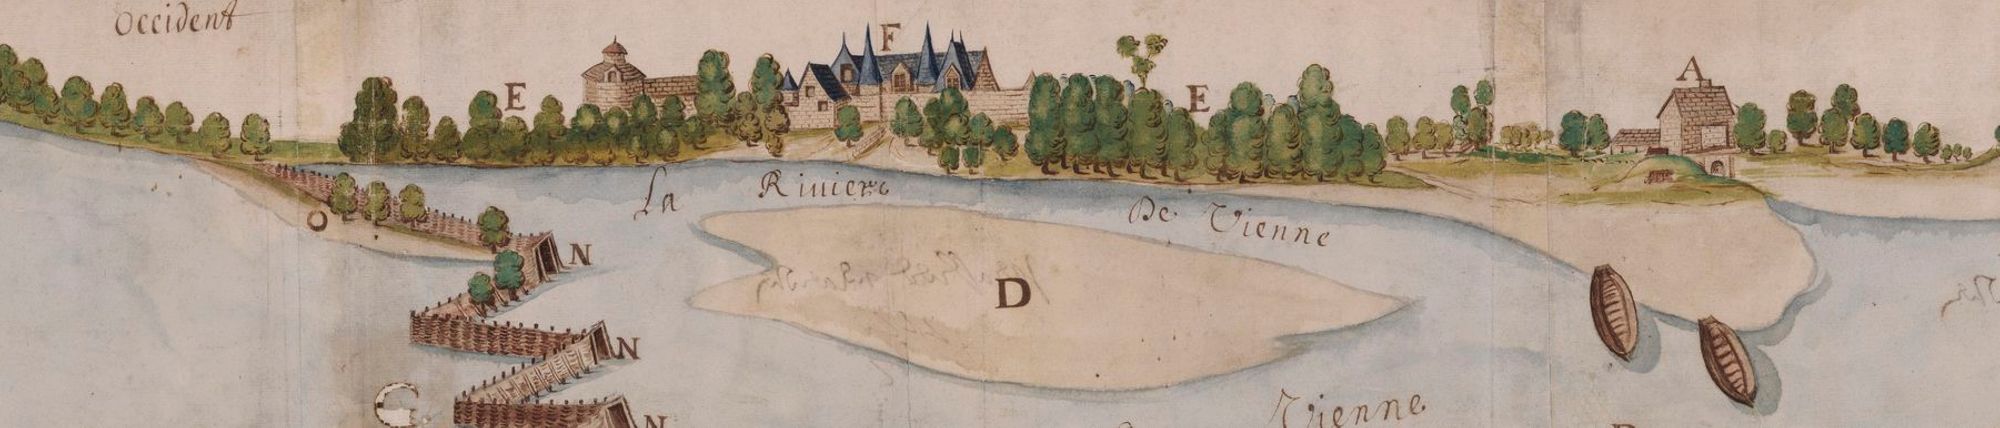 Occident
F
A
E
E
La Riviere De Vienne
O
N
D
N
G
N
Vienne